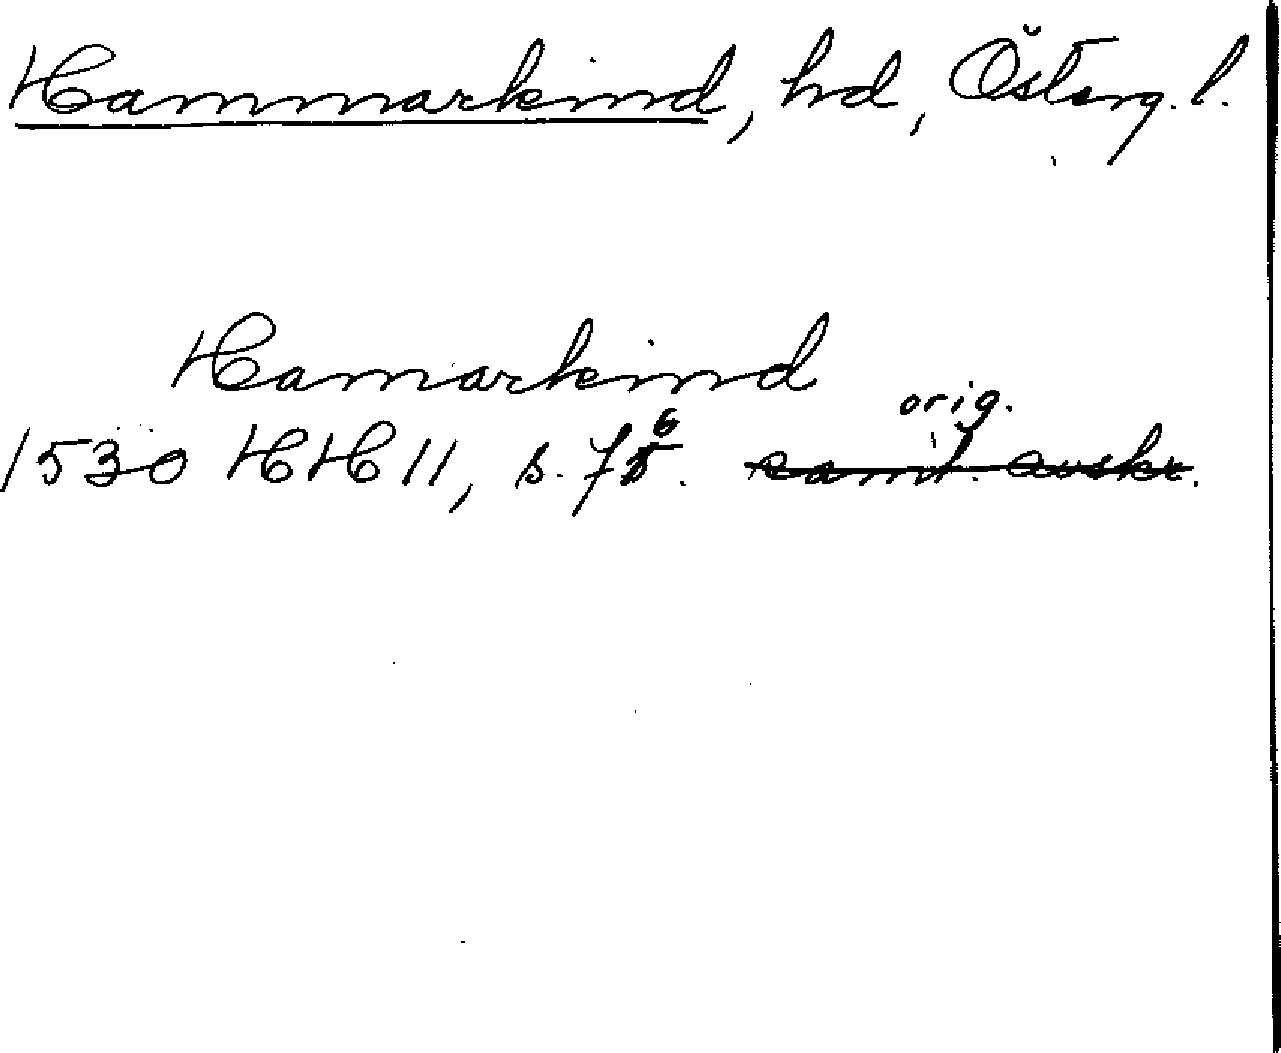 Hammarkind, hd, Österg. l.
Hamarkind
orig.
1530 HH 11, s. 76. samt. avskr.